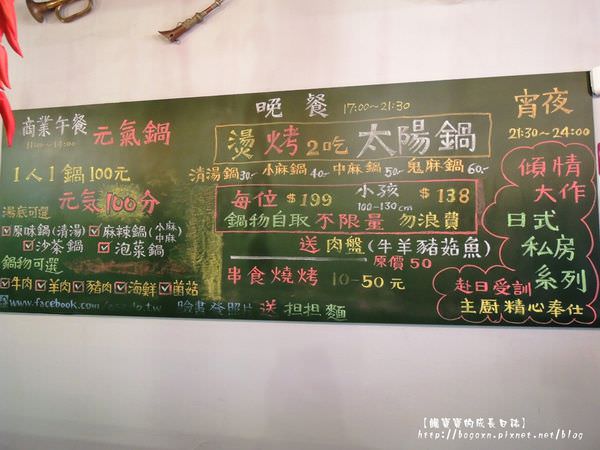 商業午餐
11:00~14:00
元氣鍋
1人1鍋100元
元気100分
湯底可選
原味鍋(清湯) 麻辣鍋(小麻 中麻)
沙茶鍋 泡菜鍋
鍋物可選
牛肉 羊肉 豬肉 海鮮 菌菇
www.facebook.com
晚餐 17:00~21:30
燙烤2吃 太陽鍋
清湯鍋30.- 小麻鍋40.- 中麻鍋50.- 鬼麻鍋60.-
每位 $199 小孩 100-130cm $138
鍋物自取 不限量 勿浪費
送 肉盤 (牛羊豬菇魚)
原價50
串食燒烤 10-50元
臉書發照片 送 担担麵
宵夜
21:30~24:00
傾情
大作
日式
私房
系列
赴日受訓
主廚精心奉仕
【熊寶寶的成長日誌】
http://bogoxn.pixnet.net/blog